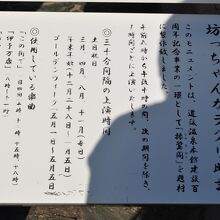 坊っちゃんカラクリ時計
このモニュメントは、道後温泉本館建設百
周年記念事業の一環として「振鷺閣」を題材
に製作致しました。
午前八時から午後十時の間、次の期間を除き、
1時間ごとに上演いたします。
◎三十分間隔の上演時間
土日祝日
三月 四月 八月 十一月(毎日)
年末年始(十二月二十八日~一月五日)
ゴールデンウィーク(五月一日~五月五日)
◎使用している楽曲
「この街で」
「伊予万歳」